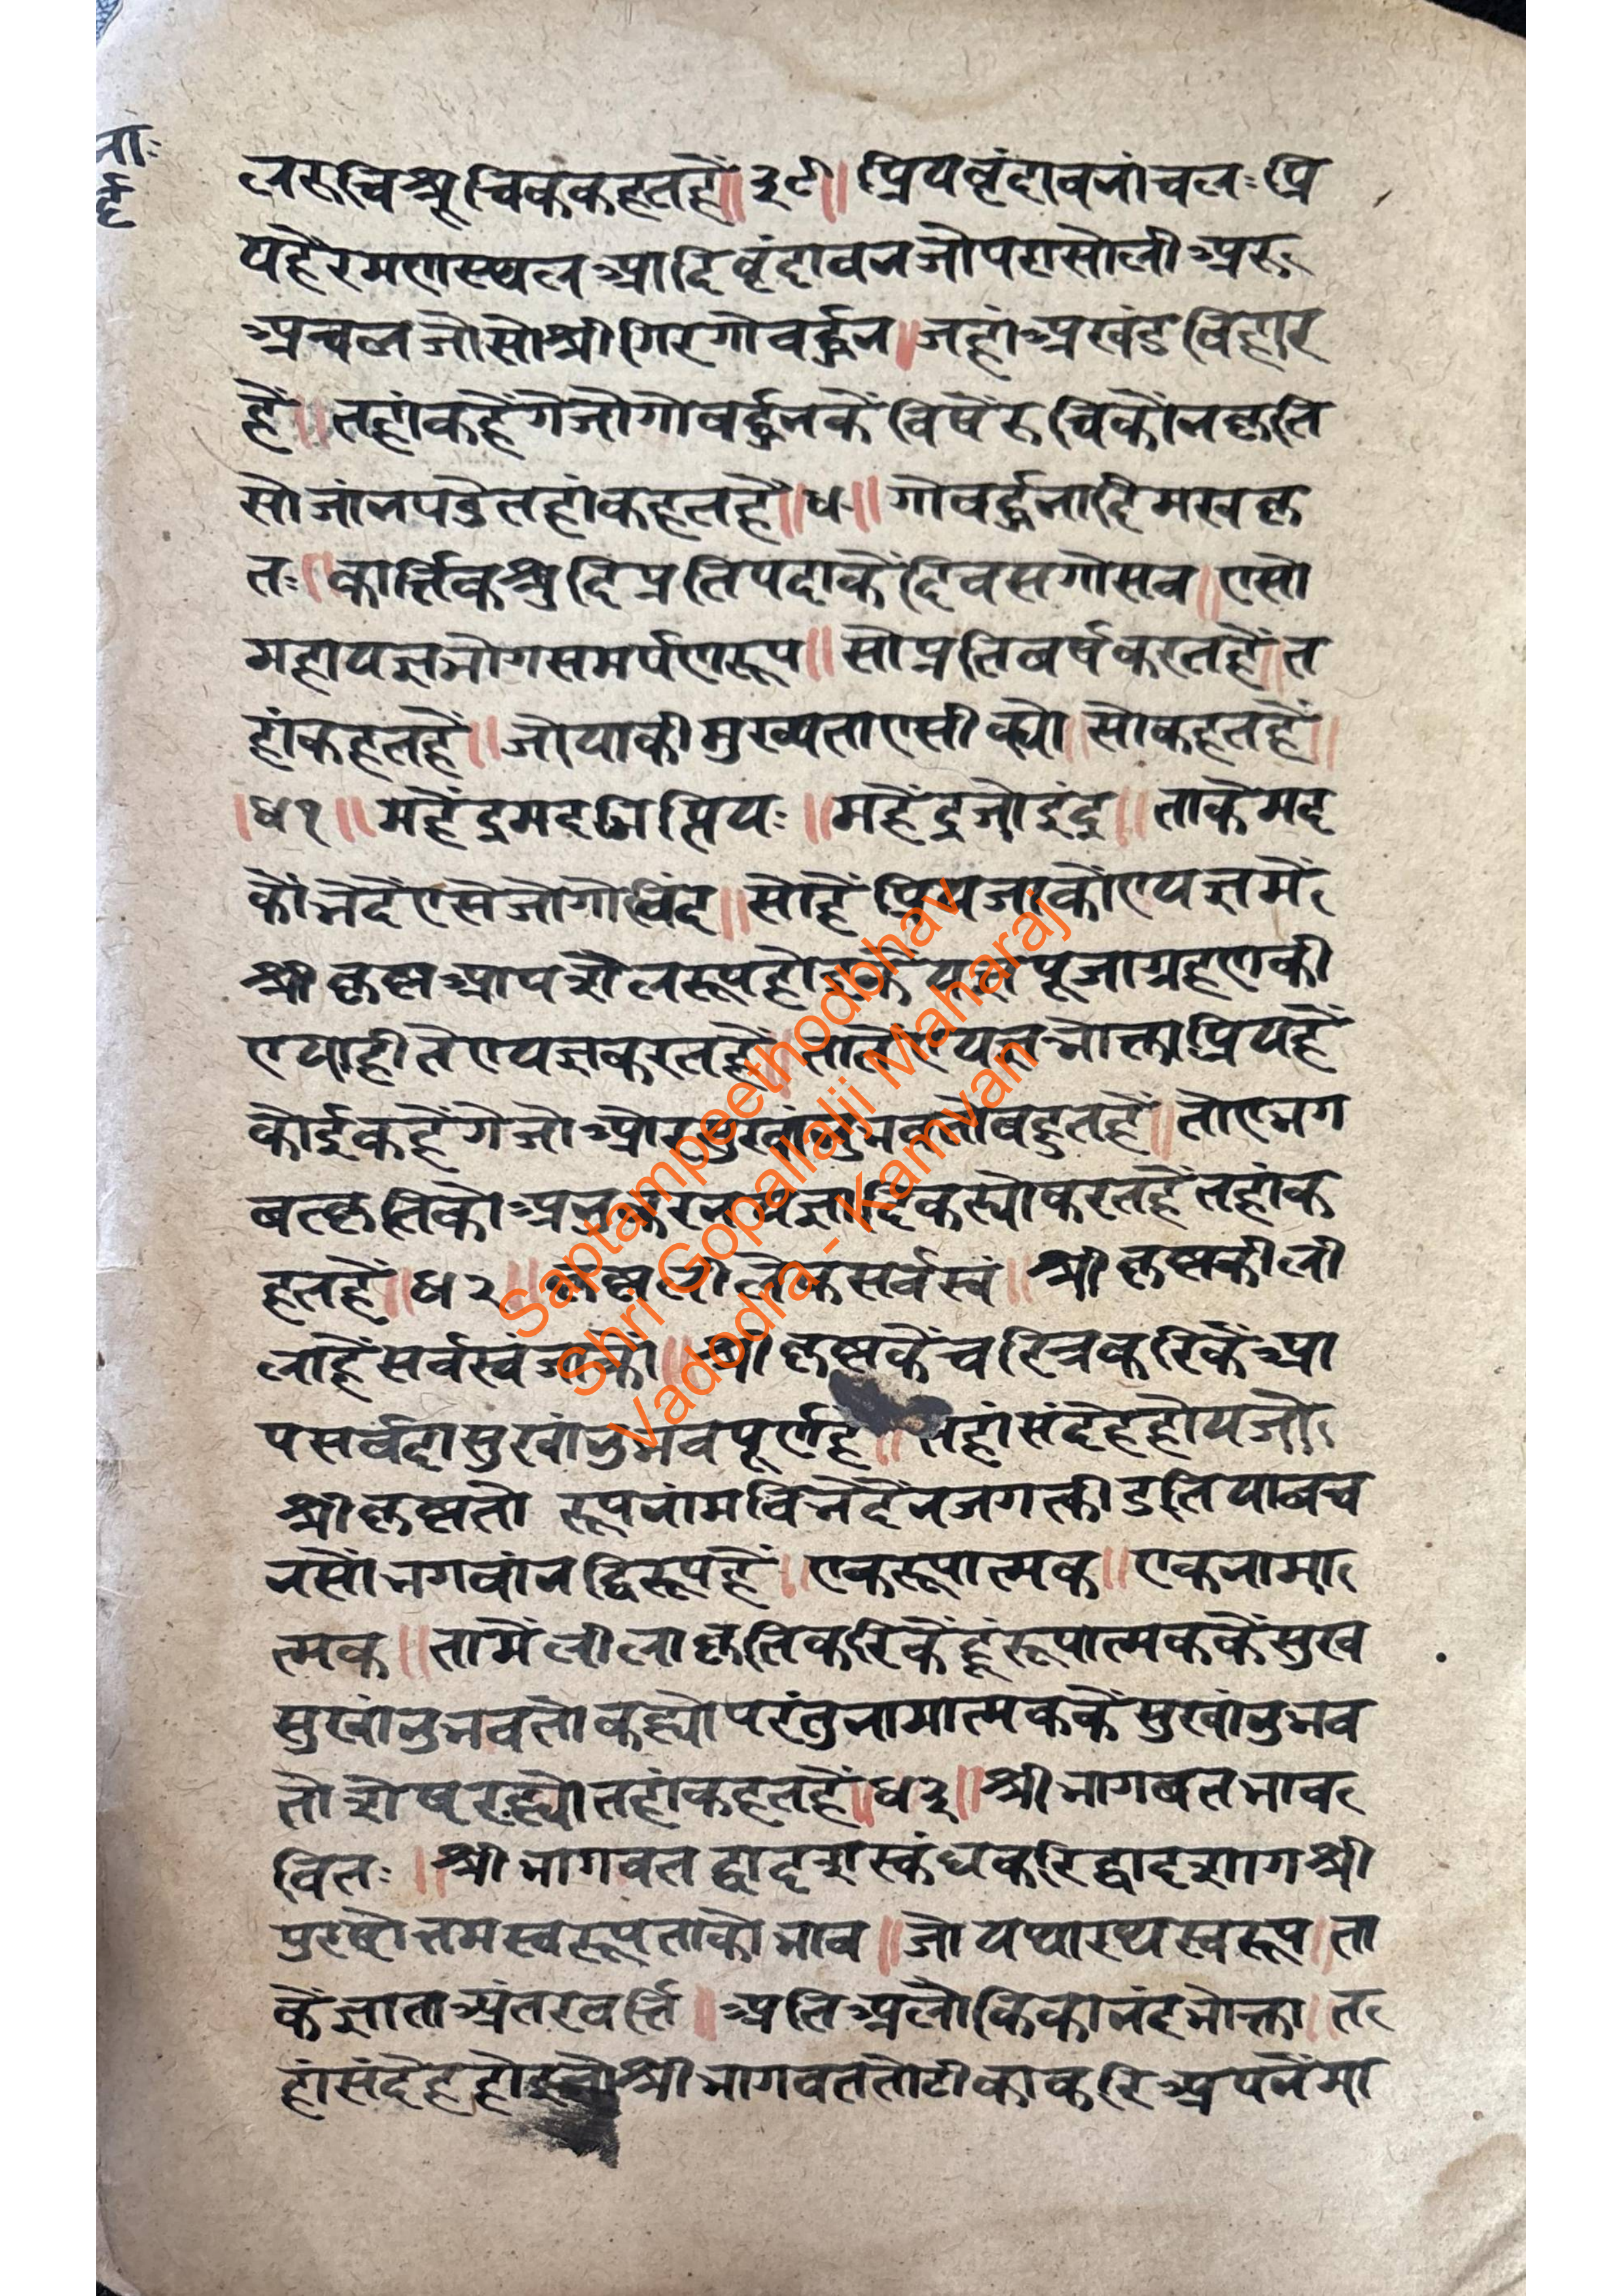 ना:
र्द्ध
लरुचिश्रूचिकेंकहतहें॥३९॥प्रियवृंदावनांचल:प्रि
यहैरमणस्थलआदिवृंदावनजोपरासोलीअरु
अचलजोसोश्रीगिरगोवर्द्धन।जहांअखंडविहार
हैं॥तहांकहेंगेजोगोवर्द्धनकेंविषेंरुचिकोंनकृति
सोजांनपडेतहांकहतहें॥४०॥गोवर्द्धनाद्रिमखकृ
त:॥कार्त्तिकश्रुदिप्रतिपदाकेंदिवसगोसव॥एसो
महायज्ञभोगसमर्पणरूप॥सोप्रतिवर्षकरतहें॥त
हांकहतहें॥जोयाकीमुख्यताएसीक्यो॥सोकहतहें॥
॥४१॥महेंद्रमदभित्प्रिय:॥महेंद्रजोइंद्र॥ताकेमद
कोंभेदेंएसेजोगोविंद॥सोहेंप्रियजाकोंएयज्ञमें
श्रीकृष्णआपशैलरूपहोइकेंयज्ञपूजाग्रहणकी
एयाहीतेएयज्ञकरतहें॥तातेंएयज्ञभोक्ताप्रियहैं
कोईकहेंगेजोओरसुखांनुभवतोबहुतहें॥तोएभग
बतकृतिकोअनुकरनयज्ञादिकत्योकरतहेंतहांक
हतहें॥४२॥कृष्णलीलैकसर्वस्वं॥श्रीकृष्णकीली
लाहेंसर्वस्वंजाको॥श्रीकृष्णकेंचरित्रकरिकेंआ
पसर्वदासुखांनुभवपूर्णहे॥तहांसंदेहहोयजो
श्रीकृष्णतो रूपनांमविभेदेंनजगत्क्रीडतियाबच
नसोंभगवांनद्विरूपहें॥एकरूपात्मक॥एकनामा
त्मक॥तामेंलीलाकृतिकरिकेंहूंरूपात्मककेंसुख
सुखांनुभवतोकह्योपरंतुनामात्मककेंसुखांनुभव
तोशेषरह्योतहांकहतहें॥४३॥श्रीभागबतभाव
वित:॥श्रीभागवतद्वादशस्कंधकरिद्वादशांगश्री
पुरुषोत्तमस्वरूपताकोभाव॥जोयथारथस्वरूप॥ता
केंज्ञाताअंतरवर्त्ति॥अतिअलौकिकानंदभोक्ता॥त
हांसंदेहहोइजोश्रीभागवततोटीकाकरिअपनेंमा
Saptampeethodbhav
Shri Gopallalji Maharaj
Vadodra - Kamvan